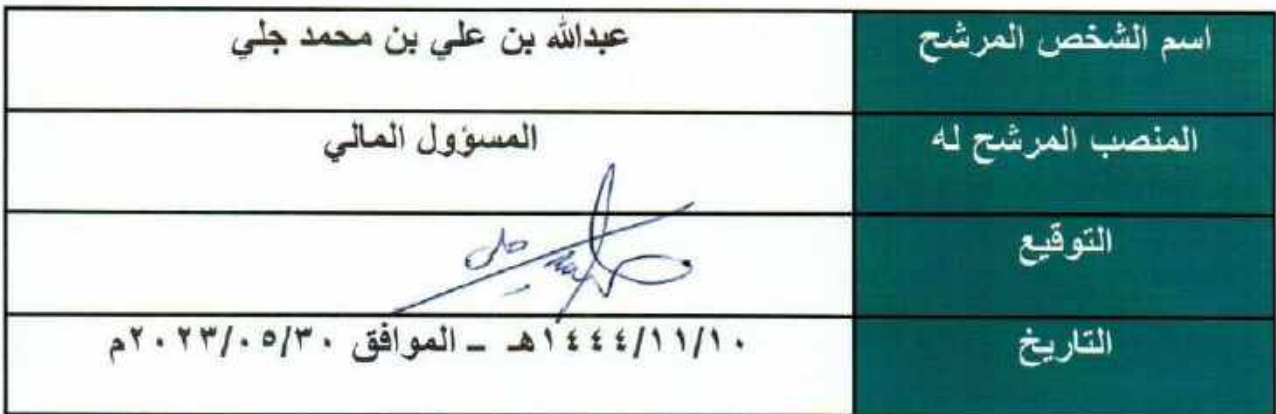 اسم الشخص المرشح عبدالله بن علي بن محمد جلي
المنصب المرشح له المسؤول المالي
التوقيع
التاريخ ١٤٤٤/١١/١٠هـ ـ الموافق ٢٠٢٣/٠٥/٣٠م